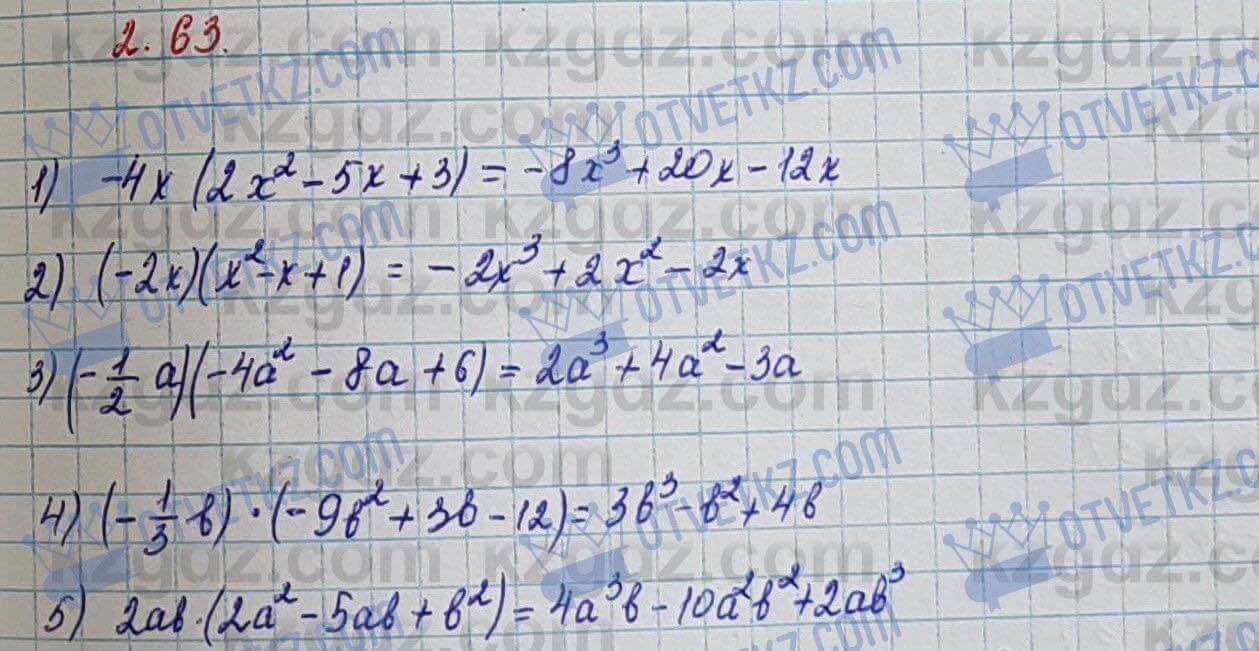 2.63.
1) -4x (2x² - 5x + 3) = -8x³ + 20x - 12x
2) (-2x)(x² - x + 1) = -2x³ + 2x² - 2x
3) (-1/2 a)(-4a² - 8a + 6) = 2a³ + 4a² - 3a
4) (-1/3 b) · (-9b² + 3b - 12) = 3b³ - b² + 4b
5) 2ab · (2a² - 5ab + b²) = 4a³b - 10a²b² + 2ab³
kzgdz.com
OTVETKZ.COM